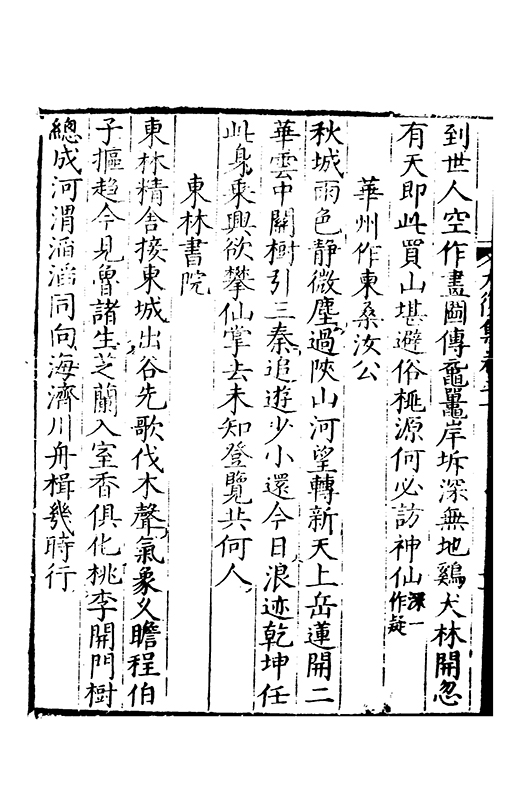 到世人空作畫圖傳黿鼉岸坼深無地鷄犬林開忽
有天即此買山堪避俗桃源何必訪神仙深一作疑
華州作東桑汝公
秋城雨色靜微塵過陝山河望轉新天上岳蓮開二
華雲中關樹引三秦追遊少小還今日浪迹乾坤任
此身乘興欲攀仙掌去未知登覽共何人
東林書院
東林精舍接東城出谷先歌伐木聲氣象乂瞻程伯
子摳趨今見魯諸生芝蘭入室香俱化桃李開門樹
總成河渭滔滔同向海濟川舟楫幾時行